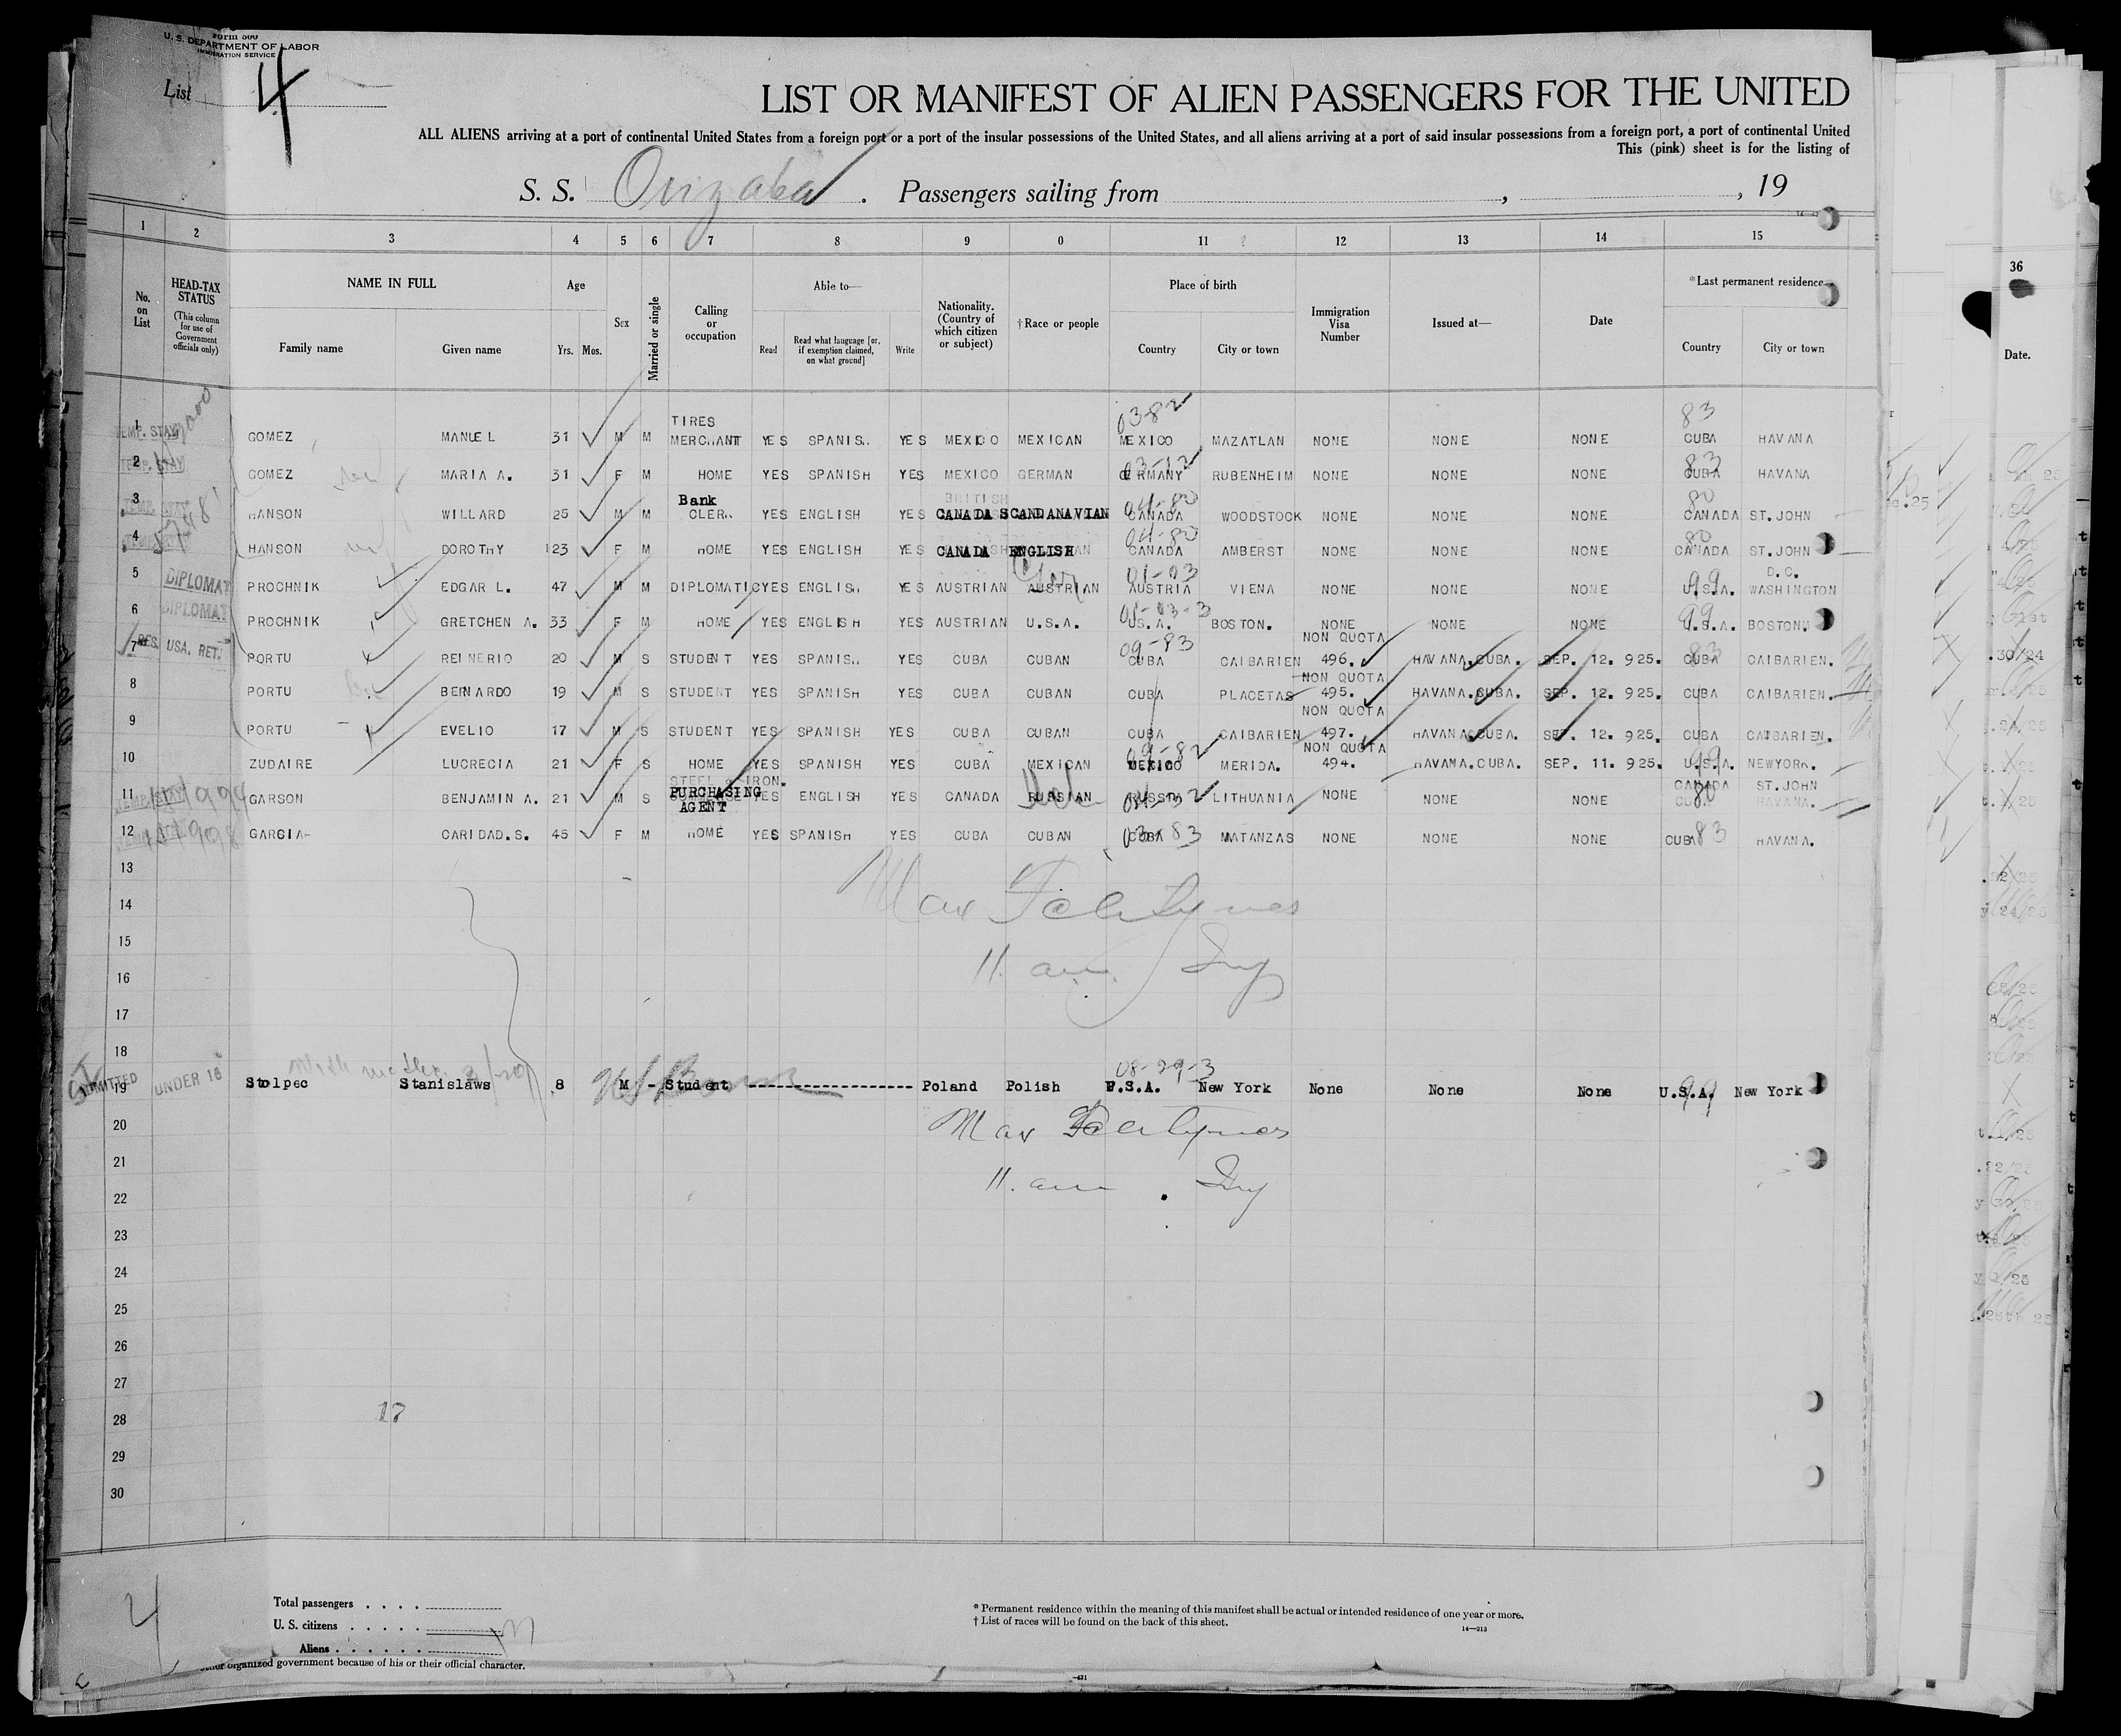 Form 500
U. S. DEPARTMENT OF LABOR
IMMIGRATION SERVICE
List 4
LIST OR MANIFEST OF ALIEN PASSENGERS FOR THE UNITED
ALL ALIENS arriving at a port of continental United States from a foreign port or a port of the insular possessions of the United States, and all aliens arriving at a port of said insular possessions from a foreign port, a port of continental United
This (pink) sheet is for the listing of
S. S. Orizaba . Passengers sailing from , , 19
1 2 3 4 5 6 7 8 9 0 11 12 13 14 15
No. on List
HEAD-TAX STATUS (This column for use of Government officials only)
NAME IN FULL Family name Given name
Age Yrs. Mos.
Sex
Married or single
Calling or occupation
Able to— Read Read what language [or, if exemption claimed, on what ground] Write
Nationality. (Country of which citizen or subject)
† Race or people
Place of birth Country City or town
Immigration Visa Number
Issued at—
Date
* Last permanent residence Country City or town
36
Date.
03-82 83
1 TEMP. STAY GOMEZ MANUEL 31 M M TIRES MERCHANT YES SPANISH YES MEXICO MEXICAN MEXICO MAZATLAN NONE NONE NONE CUBA HAVANA
2 TEMP. STAY GOMEZ MARIA A. 31 F M HOME YES SPANISH YES MEXICO GERMAN GERMANY RUBENHEIM NONE NONE NONE CUBA HAVANA
3 HANSON WILLARD 25 M M Bank CLERK YES ENGLISH YES BRITISH CANADA SCANDANAVIAN CANADA WOODSTOCK NONE NONE NONE CANADA ST. JOHN
4 HANSON DOROTHY 23 F M HOME YES ENGLISH YES CANADA ENGLISH CANADA AMBERST NONE NONE NONE CANADA ST. JOHN
5 DIPLOMAT PROCHNIK EDGAR L. 47 M M DIPLOMATIC YES ENGLISH YES AUSTRIAN AUSTRIAN AUSTRIA VIENA NONE NONE NONE U.S.A. D.C. WASHINGTON
6 DIPLOMAT PROCHNIK GRETCHEN A. 33 F M HOME YES ENGLISH YES AUSTRIAN U.S.A. U.S.A. BOSTON. NONE NONE NONE U.S.A. BOSTON.
7 RES. USA. RET. PORTU REINERIO 20 M S STUDENT YES SPANISH YES CUBA CUBAN CUBA CAIBARIEN NON QUOTA 496. HAVANA.CUBA. SEP. 12. 925. CUBA CAIBARIEN.
8 PORTU BERNARDO 19 M S STUDENT YES SPANISH YES CUBA CUBAN CUBA PLACETAS NON QUOTA 495. HAVANA.CUBA. SEP. 12. 925. CUBA CAIBARIEN.
9 PORTU EVELIO 17 M S STUDENT YES SPANISH YES CUBA CUBAN CUBA CAIBARIEN NON QUOTA 497. HAVANA.CUBA. SEP. 12. 925. CUBA CAIBARIEN.
10 ZUDAIRE LUCRECIA 21 F S HOME YES SPANISH YES CUBA MEXICAN MEXICO MERIDA. NON QUOTA 494. HAVANA.CUBA. SEP. 11. 925. U.S.A. NEWYORK.
11 TEMP. STAY GARSON BENJAMIN A. 21 M S STEEL & IRON. PURCHASING AGENT YES ENGLISH YES CANADA RUSSIAN RUSSIA LITHUANIA NONE NONE NONE CANADA ST. JOHN
12 GARCIA- CARIDAD.S. 45 F M HOME YES SPANISH YES CUBA CUBAN CUBA MATANZAS NONE NONE NONE CUBA 83 HAVANA.
13
14 Max
15
16 11. am
17
18
08-99-3
19 ADMITTED UNDER 16 Stolpec Stanislaws 8 M - Student ---------------- Poland Polish U.S.A. New York None None None U.S.A. New York
20 Max
21
22 11. am
23
24
25
26
27
28 17
29
30
4
Total passengers . . . .
U. S. citizens . . . . .
Aliens . . . . . .
other organized government because of his or their official character.
* Permanent residence within the meaning of this manifest shall be actual or intended residence of one year or more.
† List of races will be found on the back of this sheet.
14—213